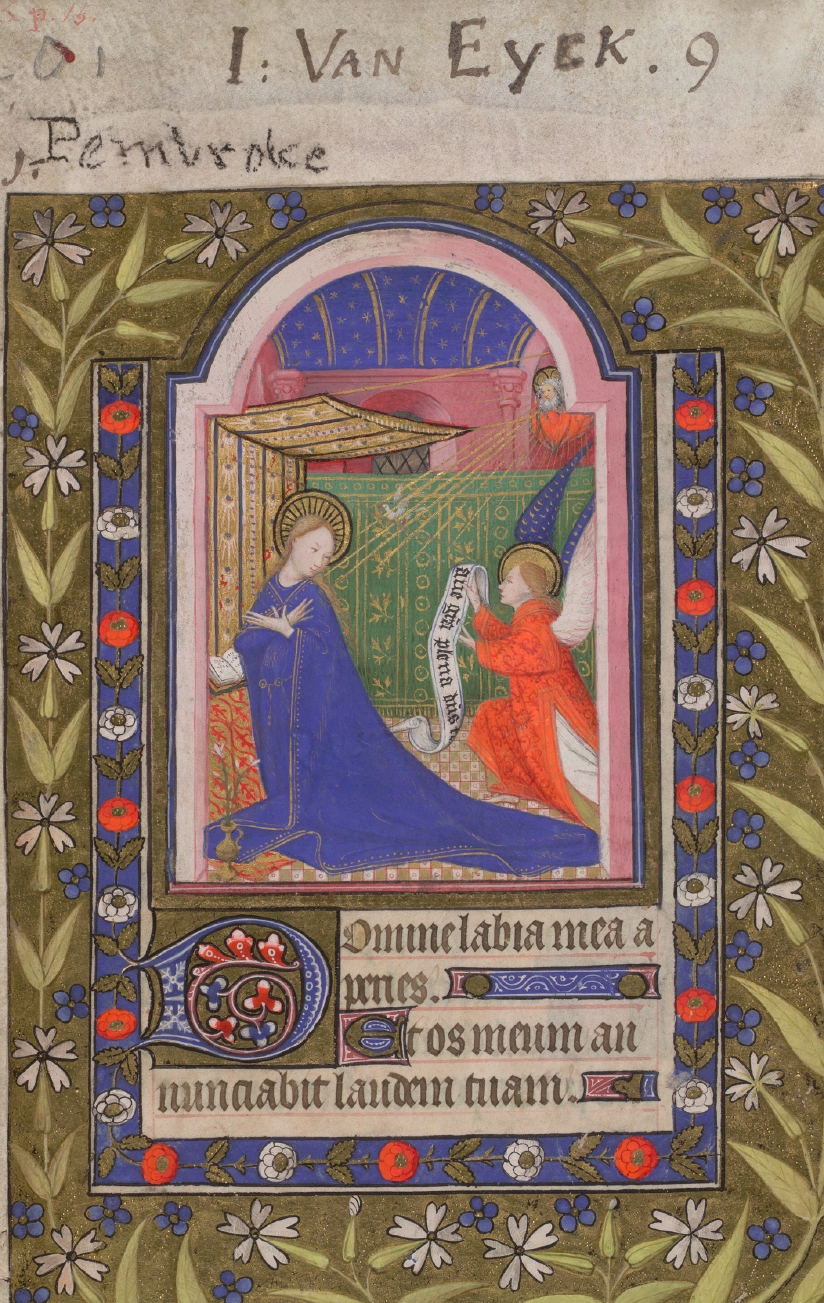 I: VAN EYCK. 9
Pembroke
aue gra plena dns
Domine labia mea a
peries.
Et os meum an
nunciabit laudem tuam.